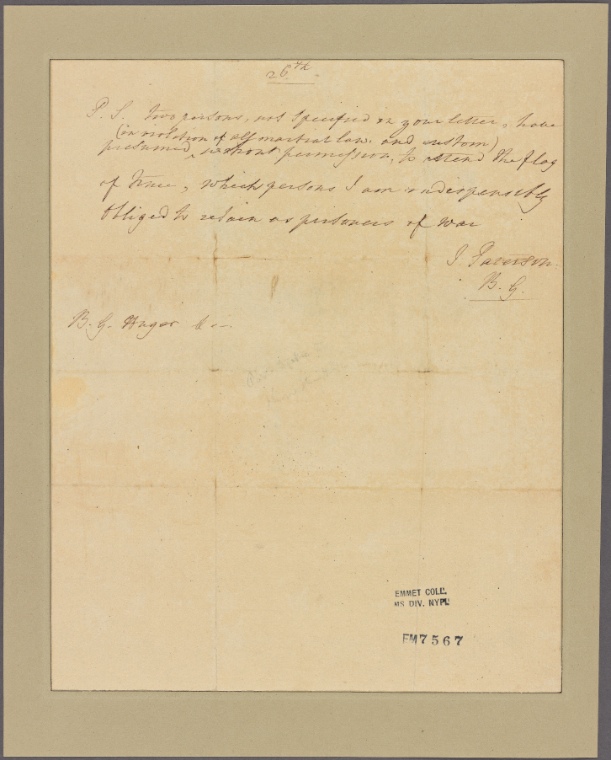 26th
P. S. two persons, not specified in your letter, have
(in violation of all martial law and custom)
presumed, without permission, to attend the flag
of truce, which persons I am indespensebly
obliged to retain as prisoners of war
J. Paterson
B. G.
B. G. Huger &c—
EMMET COLL.
MS DIV. NYPL
EM7567